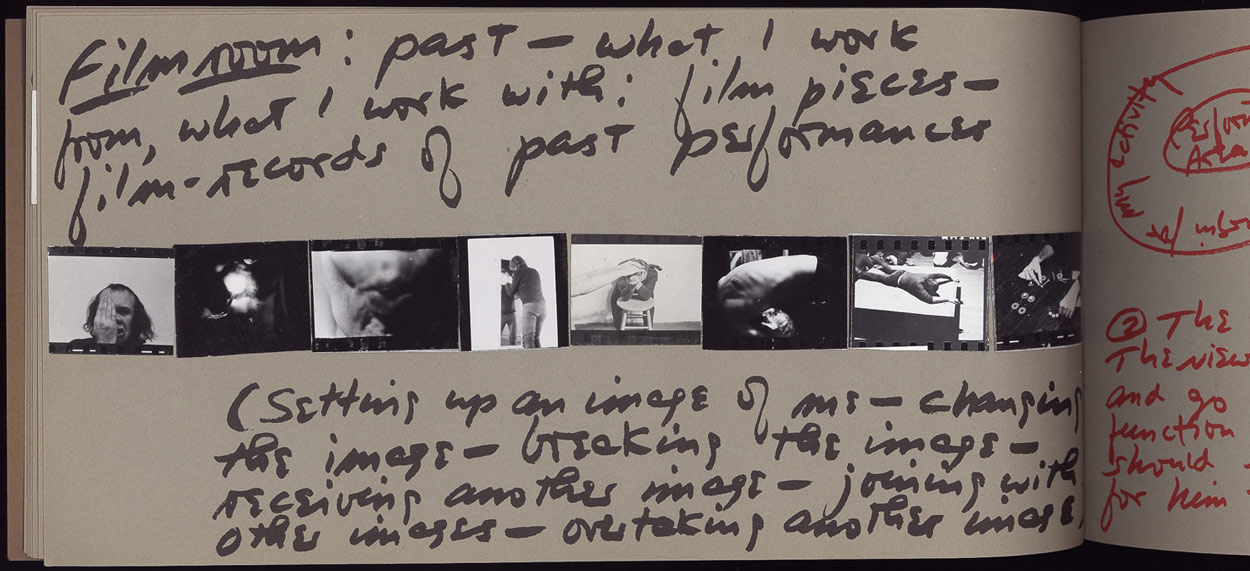 Film room: past — what I work
from, what I work with: film pieces —
film-records of past performances
(Setting up an image of me — changing
the image — breaking the image —
receiving another image — joining with
other images — overtaking another image,
my activity
② The
The view
and go
function
should —
for him —